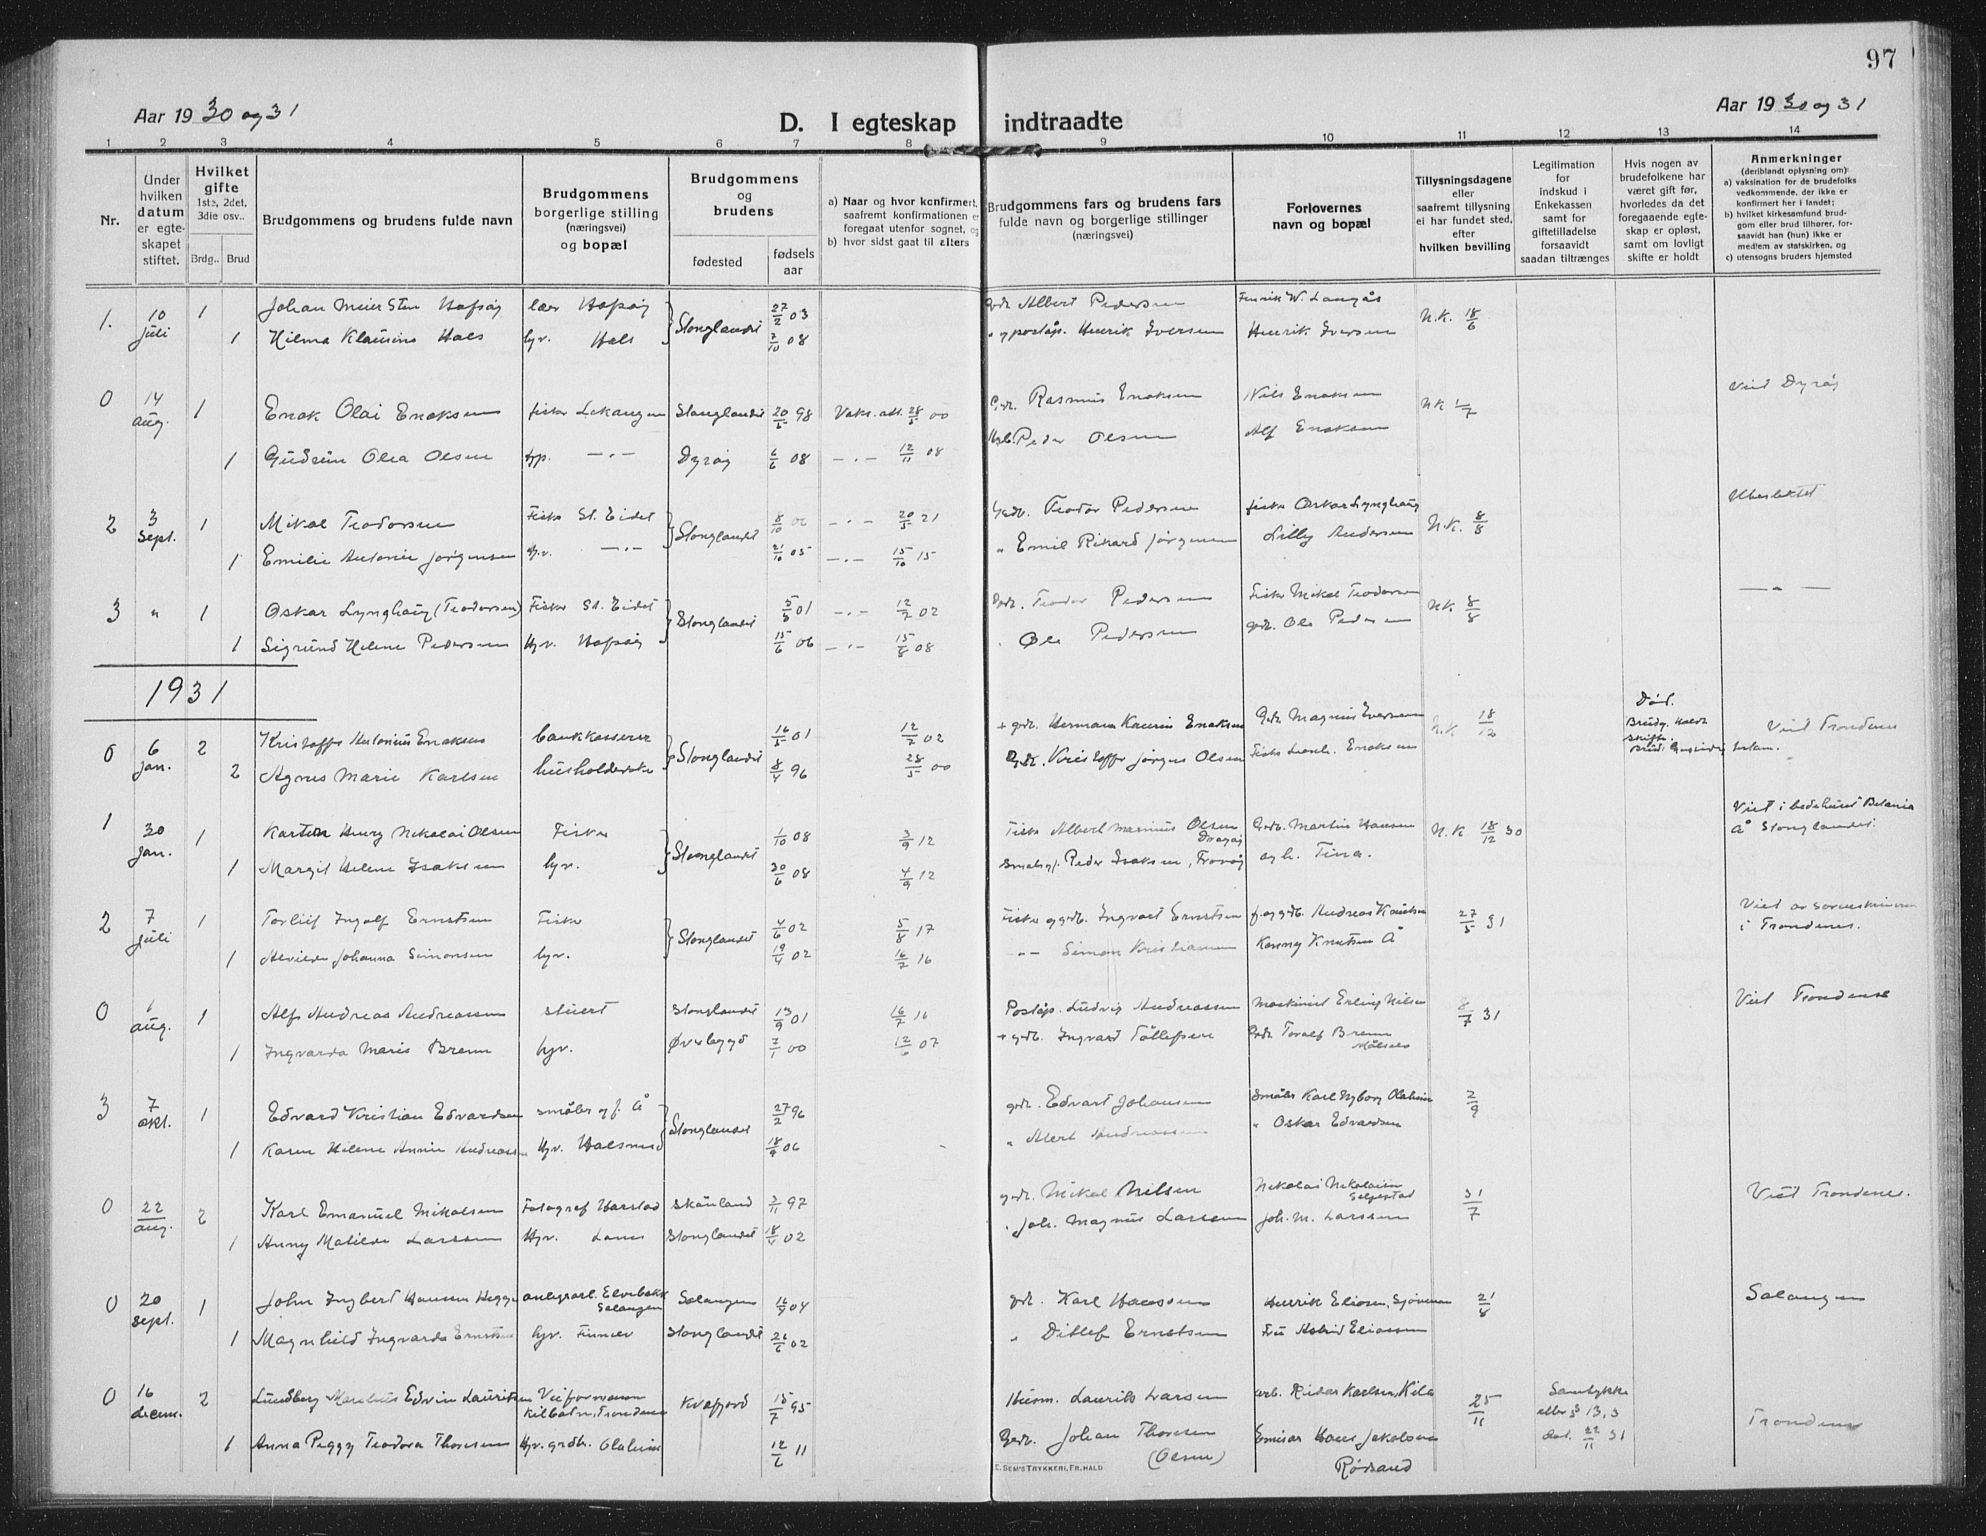 97
Aar 1930 og 31
D. I egteskap indtraadte
Aar 1930 og 31
1 2 3 4 5 6 7 8 9 10 11 12 13 14
Nr.
Under hvilken datum er egteskapet stiftet.
Hvilket gifte 1ste, 2det, 3die osv..
Brdg.. Brud
Brudgommens og brudens fulde navn
Brudgommens borgerlige stilling (næringsvei) og bopæl
Brudgommens og brudens
fødested
fødsels aar
a) Naar og hvor konfirmert, saafremt konfirmationen er foregaat utenfor sognet, og
b) hvor sidst gaat til alters
Brudgommens fars og brudens fars fulde navn og borgerlige stillinger (næringsvei)
Forlovernes navn og bopæl
Tillysningsdagene eller saafremt tillysning ei har fundet sted, efter hvilken bevilling
Legitimation for indskud i Enkekassen samt for giftetilladelse forsaavidt saadan tiltrænges
Hvis nogen av brudefolkene har været gift før, hvorledes da det foregaaende egteskap er opløst, samt om lovligt skifte er holdt
Anmerkninger (deriblandt oplysning om):
a) vaksination for de brudefolks vedkommende, der ikke er konfirmert her i landet;
b) hvilket kirkesamfund brudgom eller brud tilhører, forsaavidt han (hun) ikke er medlem av statskirken, og
c) utensogns bruders hjemsted
1. 10 juli 1 Johan Meier Sten Hofsøy lær Hofsøy Stonglandet 27/2 03 Albert Pedersen Henrik W. Langås N.K. 18/6
1 Hilma Klausine Hals hv. Hals 3/10 08 Henrik Iversen Henrik Iversen
0 14 aug. 1 Enok Olai Enoksen fisker Lekangen Stonglandet 20/5 98 Vaks.att. 28/5 00 Gdr. Rasmus Enoksen Nils Enoksen N.K 1/7 Viet Dyrøy
1 Gudrun Olea Olsen hp. —"— Dyrøy 6/6 08 —"— 12/11 08 Peder Olsen Alf Enoksen
2 3 sept. 1 Mikal Teodorsen Fisker St. Eidet Stonglandet 8/10 —"— 20/5 21 Gdr. Teodor Pedersen fisker Oskar Lynghaug N.K. 8/8
1 Emilie Antonie Jørgensen hv. —"— 21/10 05 —"— 15/10 15 " Emil Rikard Jørgensen Lilly Andersen
3 " 1 Oskar Lynghaug (Teodorsen) Fisker St. Eidet Stonglandet 5/5 01 —"— 12/7 02 Teodor Pedersen Fisker Mikal Teodorsen N.K. 8/8 — " —
1 Sigrund Helene Pedersen Hv. Hofsøy 15/6 06 —"— 15/8 08 Ole Pedersen gdr. Ole Pedersen
1931
0 6 jan. 2 Kristoffer Antonius Enoksen bankkasserer Stonglandet 16/5 01 12/7 02 + gdr. Hermann Kaurin Enoksen Gdr. Magnus Iversen N.K 18/12 Død. Viet Trondenes
2 Agnes Marie Karlsen husholderske 8/4 96 28/5 00 Gdr. Kristoffer Jørgen Olsen Fisker Enoksen
1 30 jan. 1 Karsten Henry Nikolai Olsen Fisker Stonglandet 1/10 08 3/9 12 Fisker Albert Marinius Olsen Gdr. Martin Hansen N.K 18/12 30 Viet i bedehuset Betania
Å Stonglandet.
1 Margit Helene Isaksen hv. 30/6 08 4/9 12 Peder Isaksen, Frovåg og h. Tina.
2 7 juli 1 Torleif Ingolf Ernstsen Fisker Stonglandet 4/6 02 5/8 17 Fisker og gdr. Ingvart Ernstsen f. og gdr. Andreas Knutsen 27/5 31 Viet av sorenskriveren
i Trondenes.
1 Alvilde Johanna Simonsen hv. 19/4 02 16/7 16 —"— Simon Kristiansen Konny Knutsen Å
0 1 aug. 1 Alf Andreas Andreassen stuert Stonglandet 13/9 01 16/7 16 Poståp. Ludvig Andreassen Maskinist Erling Nilsen 8/7 31 Viet Trondenes
1 Ingvarda Marie Brenn hv. Øverbygd 7/1 00 12/6 07 + gdr. Ingvard Tollefsen Gdr. Toralf Brenn Målselv
3 7 okt. 1 Edvard Kristian Edvardsen småbr. og f. Å Stonglandet 27/2 96 gdr. Edvart Johansen Småbr. Karl Nyborg Olaheim 2/9
1 Karen Helene Annie Andreassen Hv. Halsnes 18/9 06 " Alert Andreassen " Oskar Edvardsen
0 22 aug. 2 Karl Emanuel Mikalsen Fotograf Harstad Skånland 3/11 97 gdr. Mikal Nilsen Nikolai Nikolaisen Selgestad 31/7 Viet Trondenes.
1 Anny Matilde Larssen Hv. Lanes Stonglandet 18/4 02 Joh. Magnus Larssen Joh. M. Larssen
0 20 sept. 1 John Ingbert Hansen Hegge anlegsarb. Elvebakk Salangen Salangen 16/9 04 gdr. Karl Hanssen Henrik Eliasen, Sjøvegan 21/8 Salangen
1 Magnhild Ingvarda Ernstsen hv. Finnes Stonglandet 26/6 02 " Ditlef Ernstsen Fru Astrid Eliassen
0 16 decem. 2 Lundberg Marelius Edvin Lauritsen Veiformann Kilbotn, Trondenes Kvæfjord 15/7 95 Husm. Laurits Larsen arb. Reidar Karlsen, Kila 25/11 Samtykke
efter § 13, 3
dat. 22/11 31 Trondenes
1 Anna Peggy Teodora Thoresen Hv. gdbr. Olaheim 12/6 11 Gdr. Johan Thoresen (Olsen) Emissær Hans Jakobsen
Rødsand
E. SEM'S TRYKKERI, FR.HALD